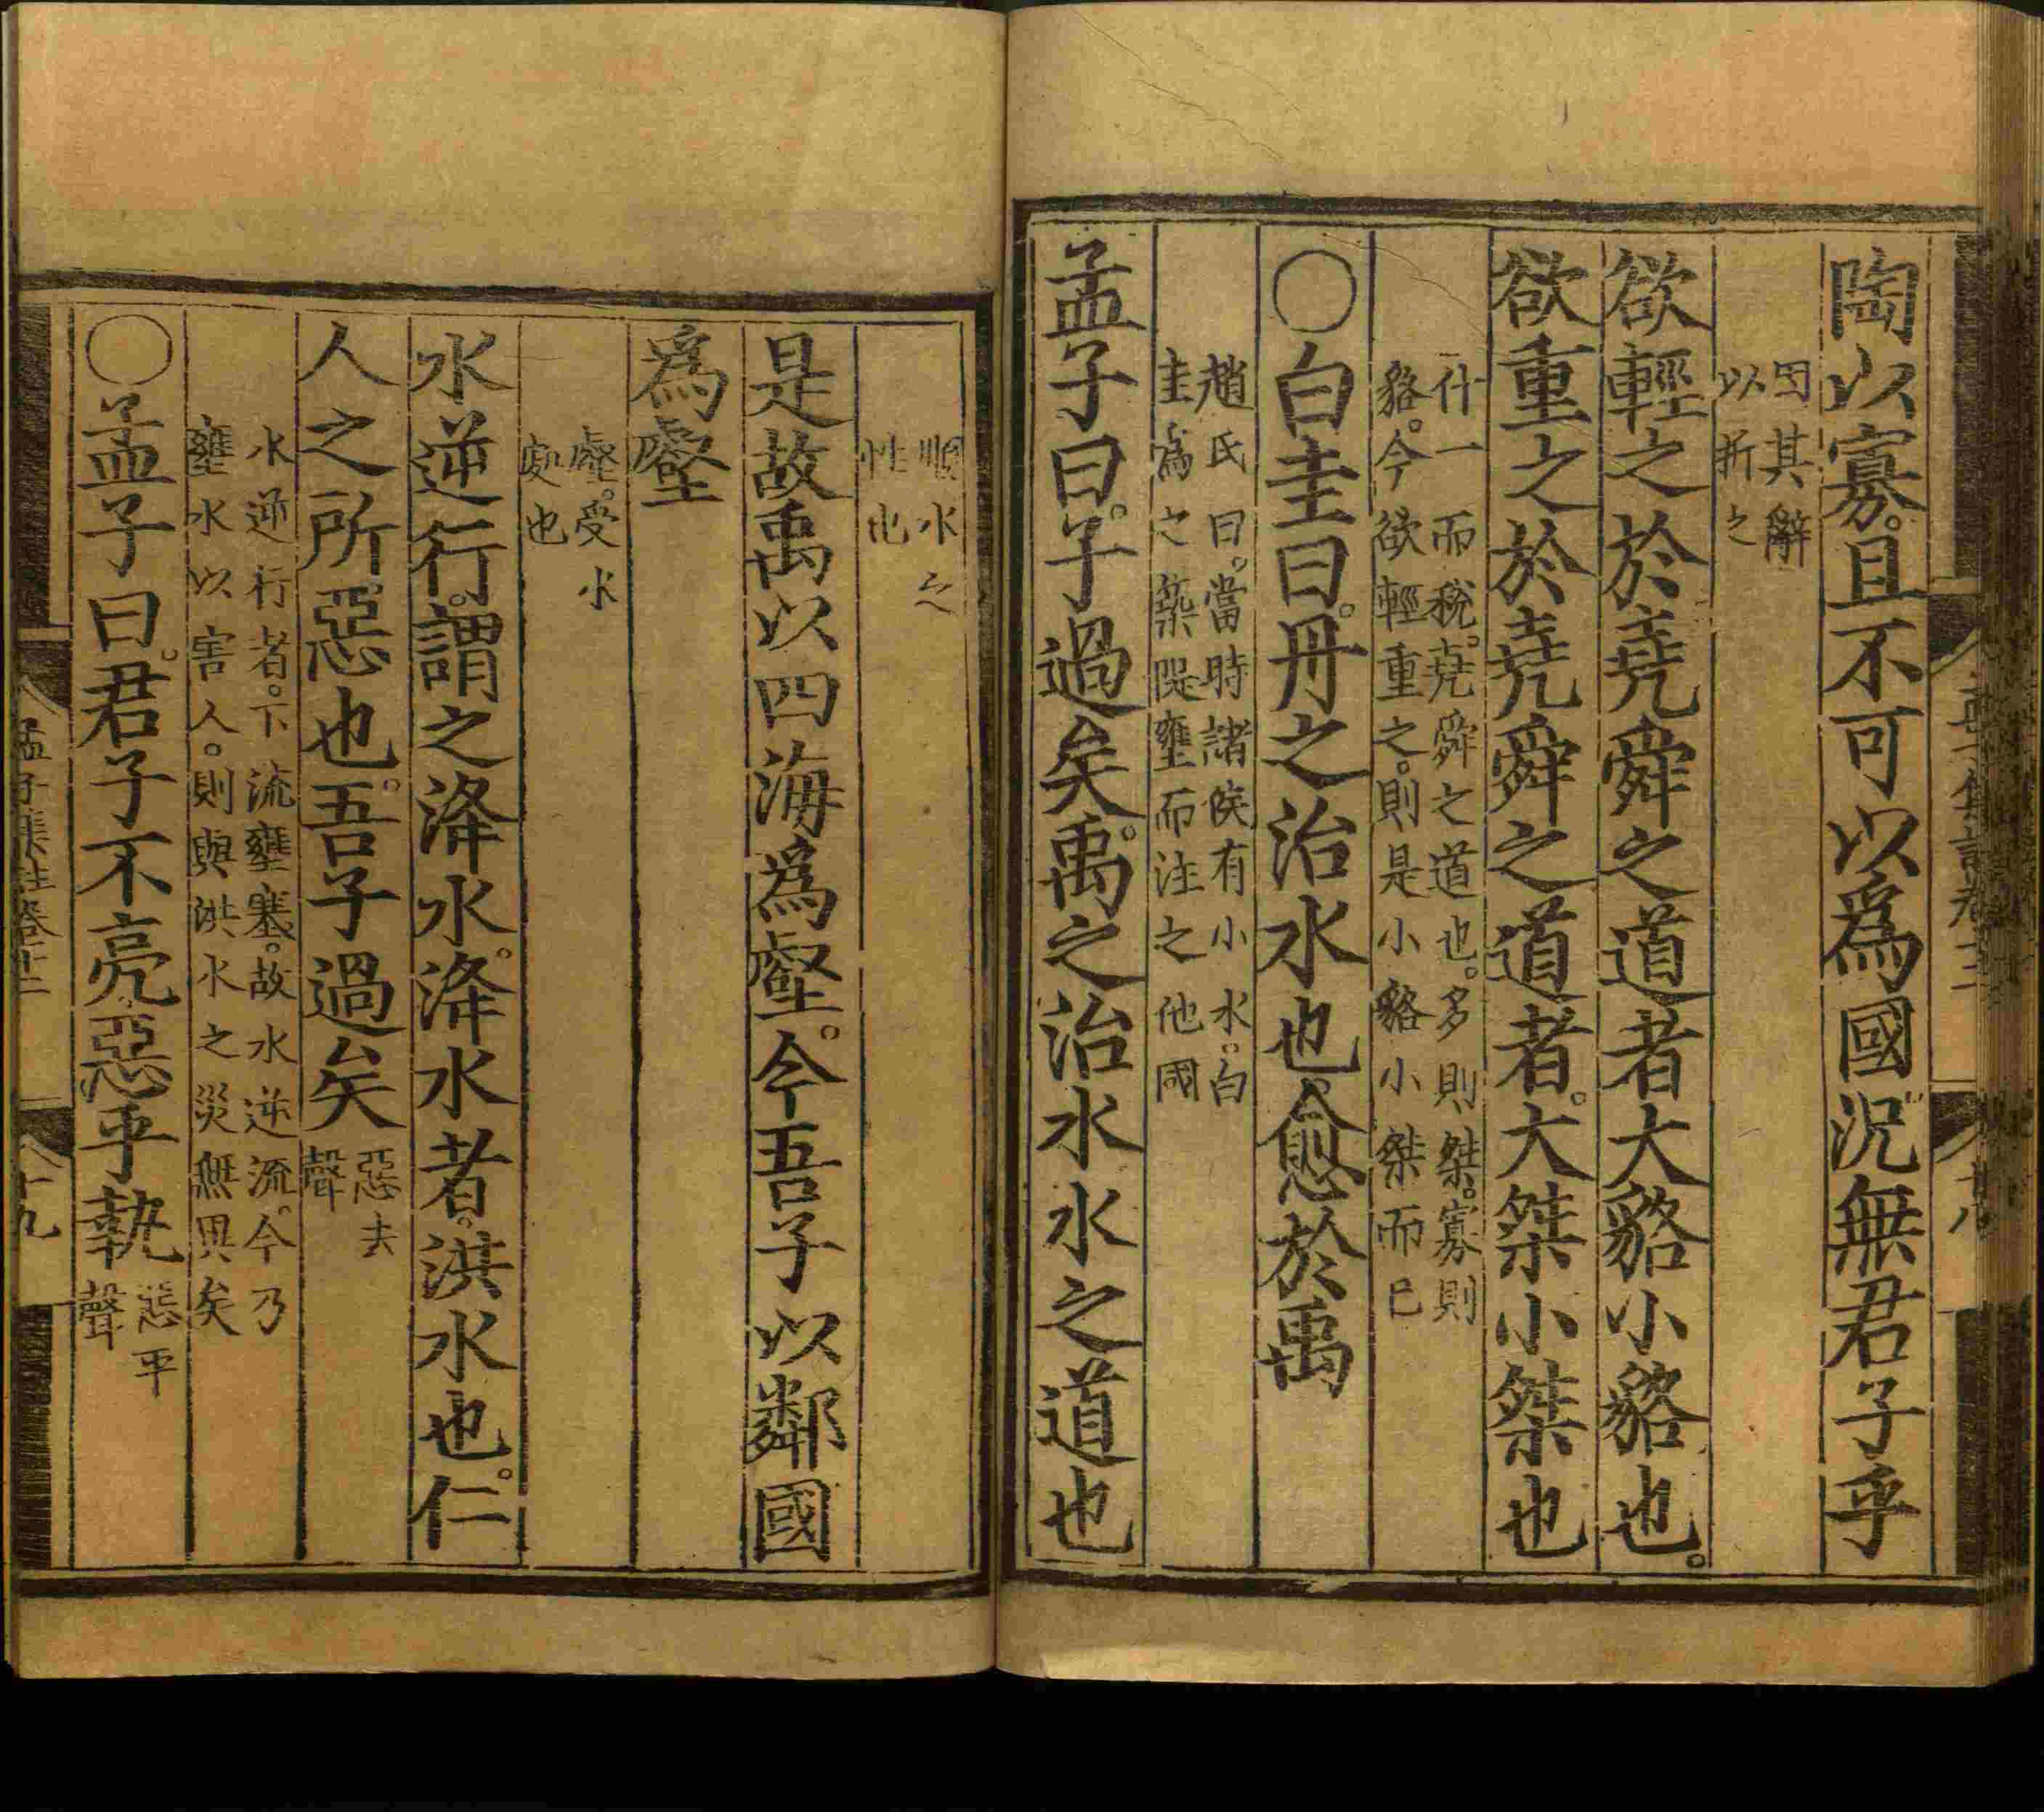 陶以寡。且不可以爲國。況無君子乎
因其辭
以折之
欲輕之於堯舜之道者大貉小貉也。
欲重之於堯舜之道者。大桀小桀也
什一而稅。堯舜之道也。多則桀。寡則
貉。今欲輕重之。則是小貉小桀而已
○白圭曰。丹之治水也。愈於禹
趙氏曰。當時諸侯有小水。白
圭爲之築隄壅而注之他國
孟子曰。子過矣。禹之治水水之道也
順水之
性也
是故禹以四海爲壑。今吾子以鄰國
爲壑
壑。受水
處也
水逆行。謂之洚水。洚水者。洪水也。仁
人之所惡也。吾子過矣
惡去
聲
水逆行者。下流壅塞。故水逆流。今乃
壅水以害人。則與洪水之災無異矣
○孟子曰。君子不亮。惡乎執
惡平
聲
孟子集註卷十二
十九